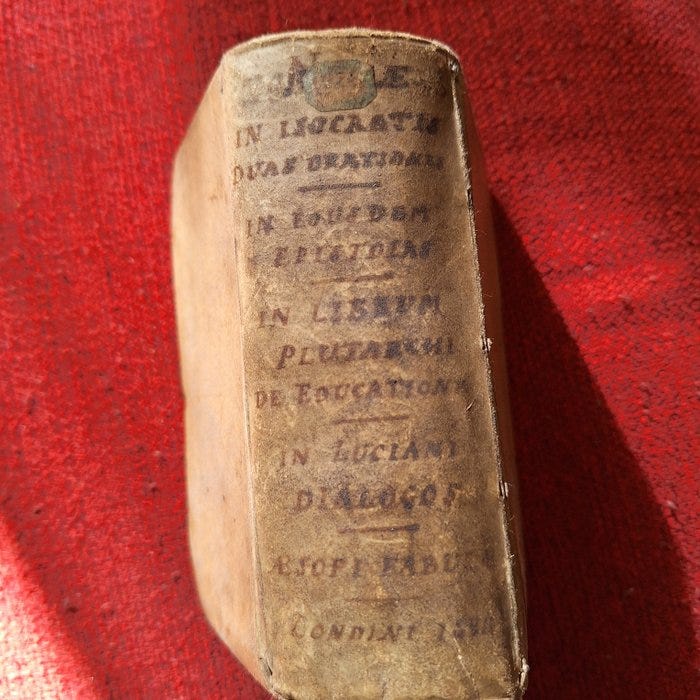 IN ISOCRATIS
DUAS ORATIONES
IN EOUSDEM
EPISTOLAS
IN LIBRUM
PLUTARCHI
DE EDUCATIONE
IN LUCIANI
DIALOGOS
ÆSOPI FABULÆ
LONDINI